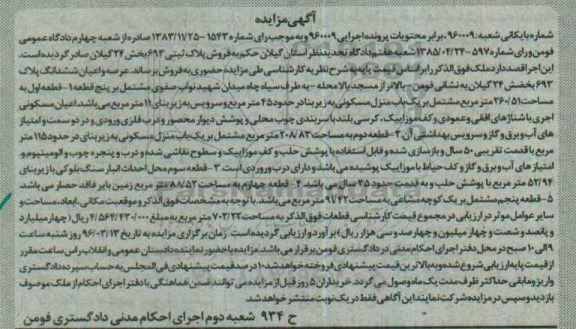 آگهی مزایده
شماره بایگانی شعبه: ۹۶۰۰۰۹، برابر محتویات پرونده اجرایی ۹۶۰۰۰۹ و به موجب رای شماره ۱۵۴۳-۱۳۸۳/۱۱/۲۵ صادره از شعبه چهارم دادگاه عمومی
فومن و رای شماره ۵۹۷-۱۳۸۵/۰۴/۲۴ شعبه هفتم دادگاه تجدیدنظر استان گیلان حکم به فروش پلاک ثبتی ۶۹۳ بخش ۲۴ گیلان صادر گردیده است.
این اجرا قصد دارد ملک فوق الذکر را بر اساس قیمت پایه به شرح نظریه کارشناسی طی مزایده حضوری به فروش برساند. عرصه و اعیان ششدانگ پلاک
۶۹۳ بخش ۲۴ گیلان به نشانی فومن - بالاتر از مسجد بالا محله - به طرف سیاه چاه میدان شهید نواب صفوی مشتمل بر پنج قطعه ۱- قطعه اول به
مساحت ۲۶۰/۵۱ متر مربع مشتمل بر یک باب منزل مسکونی به زیربنا در حدود ۴۵ متر مربع و سرویس به زیربنای ۱۱ متر مربع می باشد. اعیان مسکونی
آجری با شناژهای افقی و عمودی و کف موزاییک، کرسی بلند با سربندی چوب محلی و پوشش دیوار محصور و درب فلزی ورودی و در دو سمت و امتیاز
های آب و برق و گاز و سرویس بهداشتی آن ۲- قطعه دوم به مساحت ۲۰۸/۸۳ متر مربع مشتمل بر یک باب منزل مسکونی به زیربنای در حدود ۱۱۵ متر
مربع با قدمت تقریبی ۵۰ سال و بازسازی شده و قابل استفاده با پوشش حلب و کف موزاییک و سطوح نقاشی شده و درب و پنجره چوب و آلومینیوم و
امتیاز های آب و برق و گاز و کف حیاط با موزاییک پوشیده می باشد و دارای درب ورودی است. ۳- قطعه سوم محل احداث انبار سنگ بلوکی با زیربنای
۵۲/۹۴ متر مربع با پوشش حلب و به قدمت حدود ۲۵ سال می باشد. ۴- قطعه چهارم به مساحت ۸۸/۵۲ متر مربع زمین بایر فاقد حصار می باشد
۵- قطعه پنجم مشتمل بر یک کوچه مشاعی به مساحت ۹۷/۴۲ متر مربع می باشد. با توجه به مشخصات فوق الذکر و موقعیت مکانی، ابعاد، مساحت و
سایر عوامل موثر در ارزیابی در مجموع قیمت کارشناسی قطعات فوق الذکر به مساحت ۷۰۳/۲۲ متر مربع به مبلغ ۴/۵۶۴/۴۳۰/۰۰۰ ریال (چهار میلیارد
و پانصد و شصت و چهار میلیون و چهارصد و سی هزار ریال) برآورد و ارزیابی گردیده است. زمان برگزاری مزایده به تاریخ ۹۶/۰۳/۱۳ روز شنبه ساعت
۹ الی ۱۰ صبح در محل دفتر اجرای احکام مدنی در دادگستری فومن برقرار می باشد. مزایده با حضور نماینده دادستان عمومی و انقلاب راس ساعت مقرر
از قیمت پایه ارزیابی شروع شده و به بالاترین قیمت پیشنهادی فروخته خواهد شد. ۱۰ درصد قیمت پیشنهادی فی المجلس به حساب سپرده دادگستری
واریز و مابقی حداکثر ظرف مدت یک ماه وصول می گردد. خریداران ۵ روز قبل از مزایده می توانند ضمن هماهنگی با دفتر اجرای احکام از ملک موصوف
بازدید و سپس در مزایده شرکت نمایند. این آگهی فقط در یک نوبت منتشر خواهد شد.
ح ۹۳۴ شعبه دوم اجرای احکام مدنی دادگستری فومن